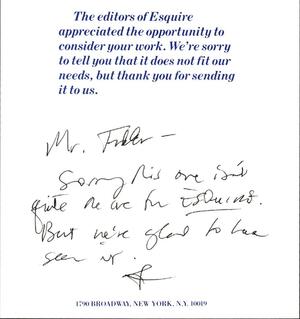 The editors of Esquire
appreciated the opportunity to
consider your work. We're sorry
to tell you that it does not fit our
needs, but thank you for sending
it to us.
Mr.
Sorry this one isn't
quite the one for Esquire.
But we're glad to have
seen it.
1790 BROADWAY, NEW YORK, N.Y. 10019